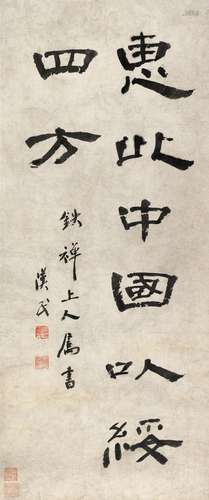 惠此中國以綏
四方
鉄禅上人屬書
漢民